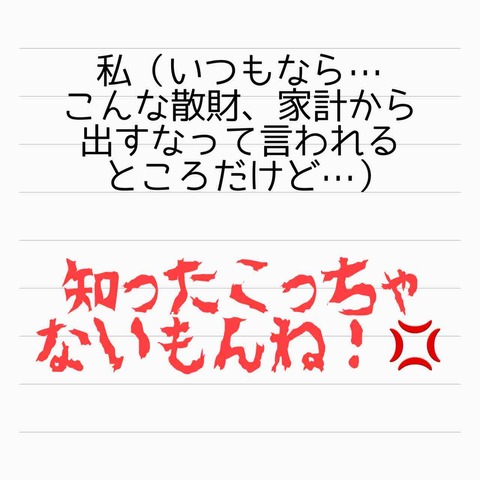 私（いつもなら…
こんな散財、家計から
出すなって言われる
ところだけど…）
知ったこっちゃ
ないもんね！💢